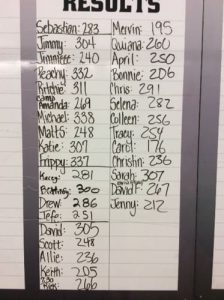 RESULTS
Sebastian: 283
Jimmy: 304
Jimnitee: 240
Peachy: 332
Ritchie: 311
Amanda: 269
Michael: 338
Matt S: 248
Katie: 307
Frippy: 337
Kacey: 281
Brittney: 300
Drew: 286
Jefe: 251
David: 305
Scott: 248
Allie: 236
Keith: 205
Rick: 266
Mervin: 195
Quiana: 260
April: 250
Bonnie: 206
Chris: 291
Selena: 282
Colleen: 256
Tracy: 254
Carol: 176
Christin: 236
Sarah: 307
David: 267
Jenny: 212